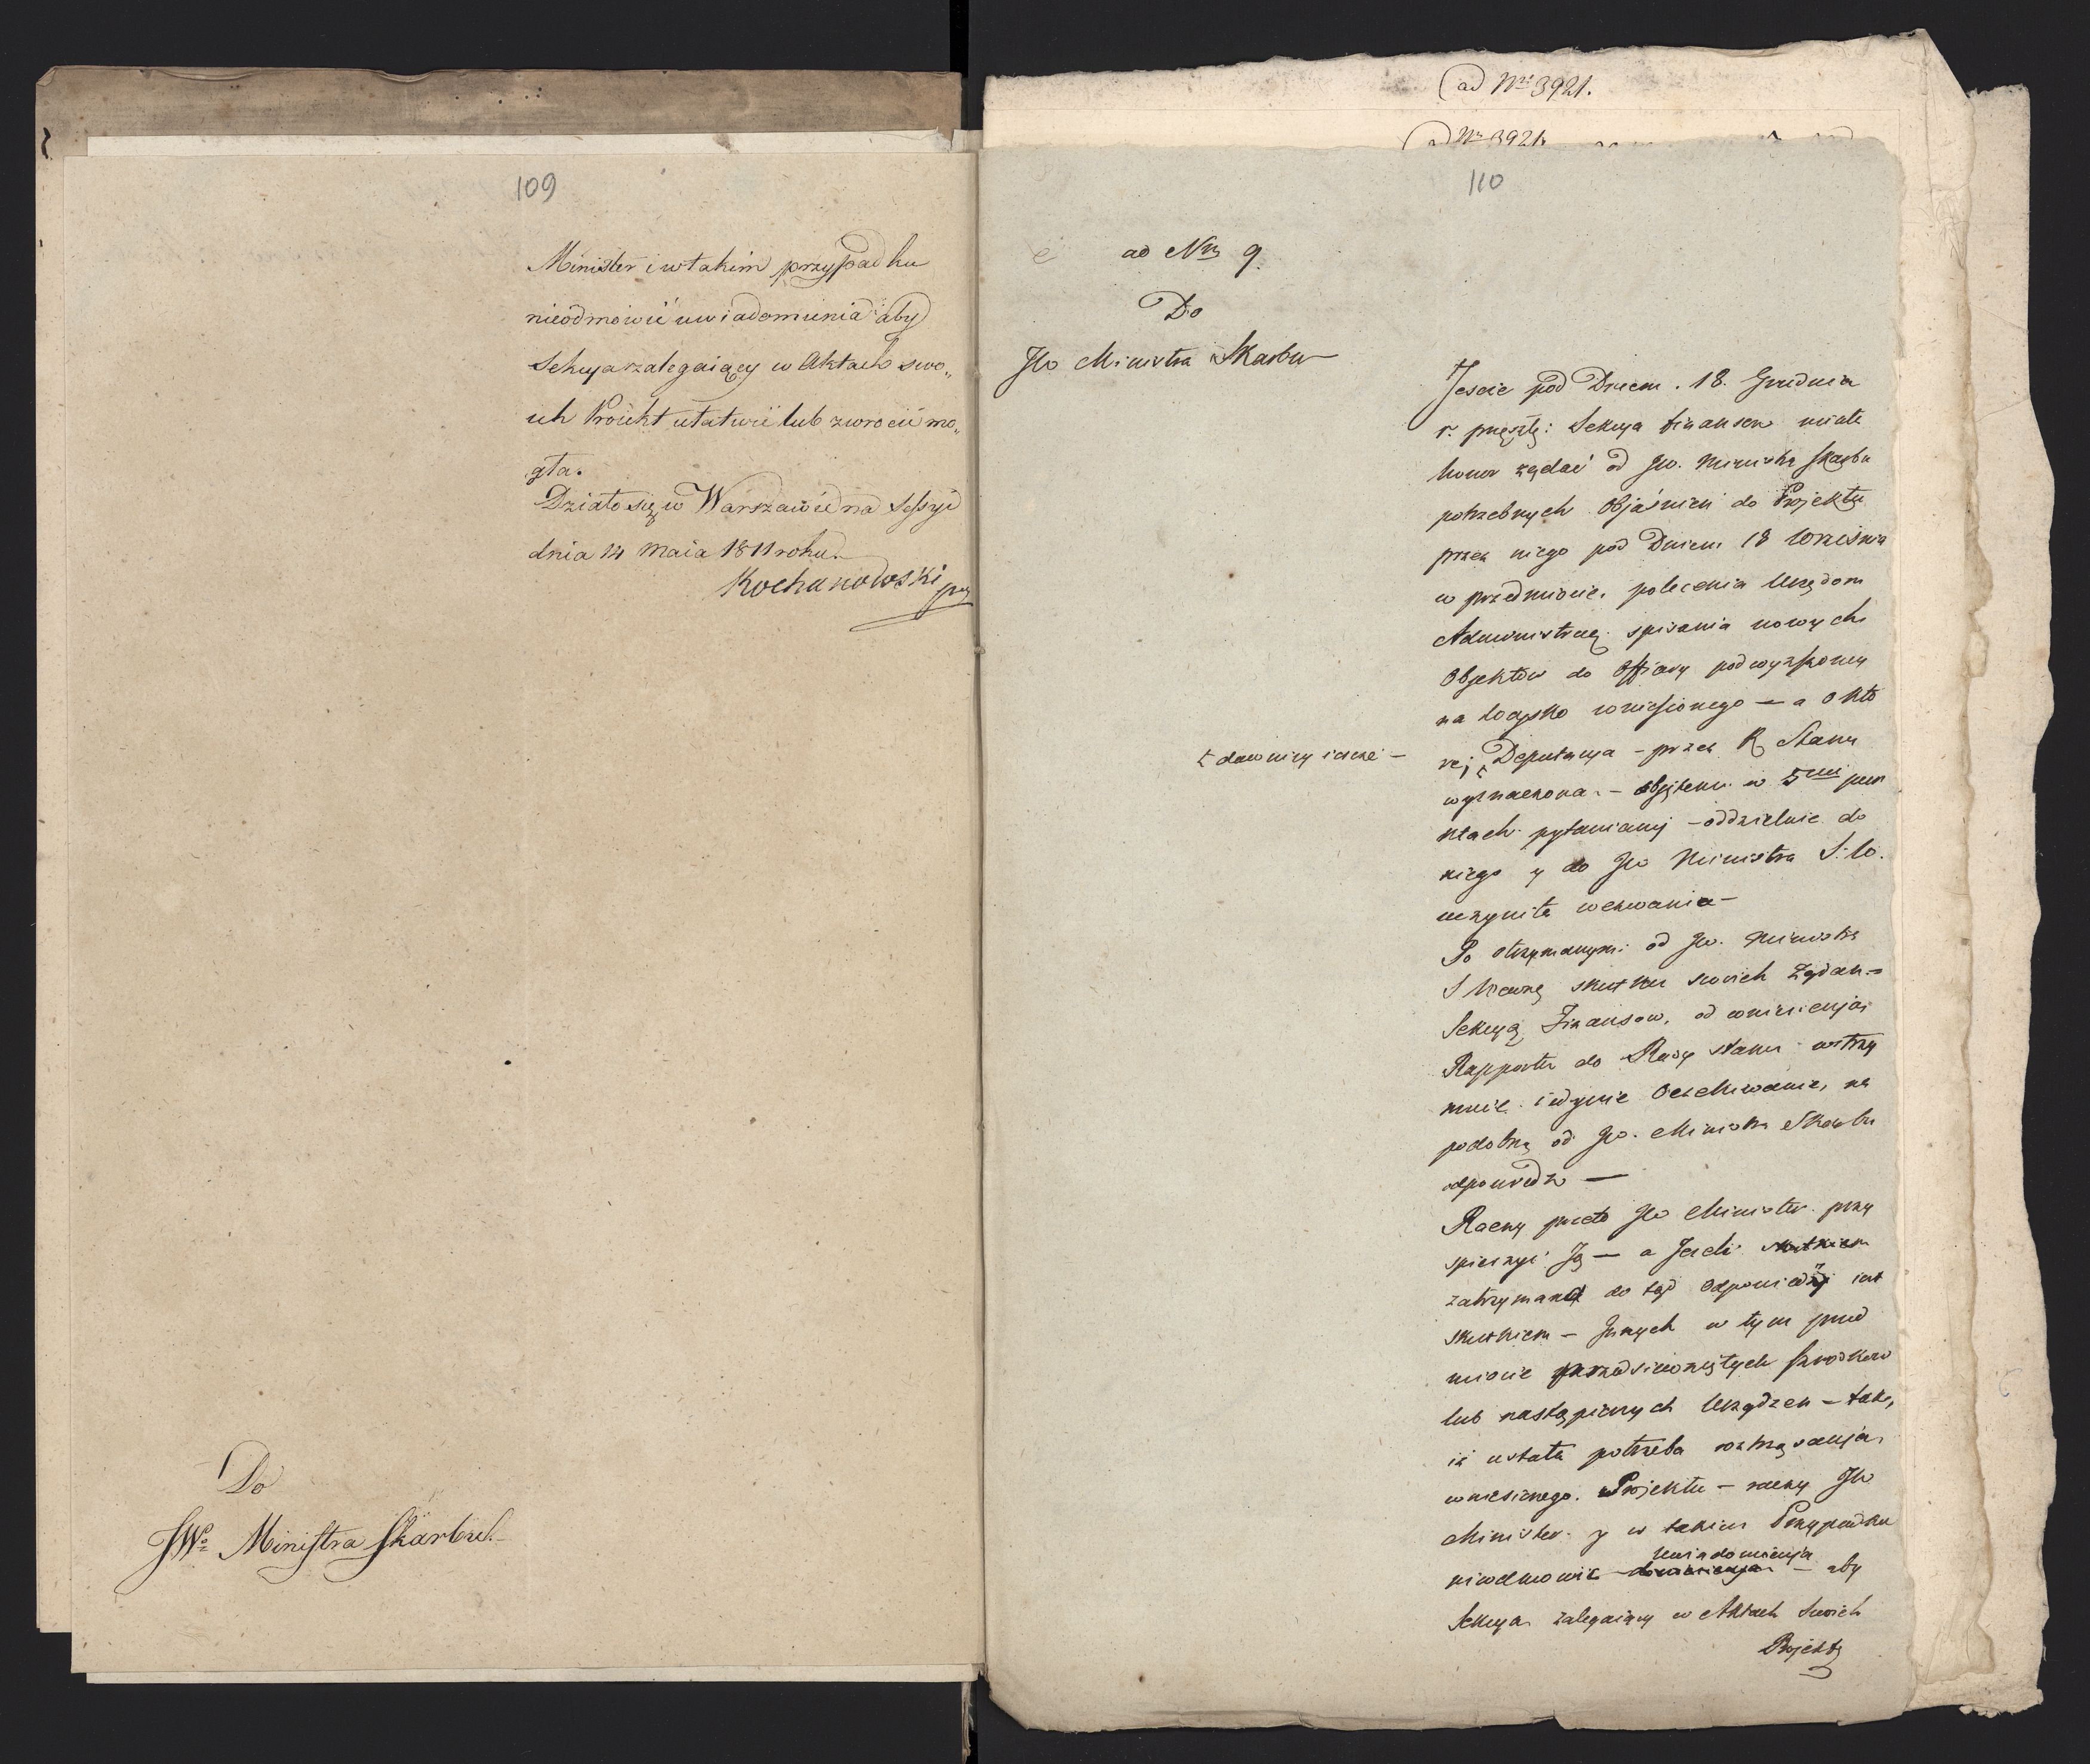 109
Minister i w takim przypadku
nieodmowić uwiadomienia aby
Sekcya zalegaiący w Aktach swo„
ich Proiekt ułatwić lub zwrocić mo„
gła.
Działo się w Warszawie na Sessyi
dnia 14 Maia 1811 roku.
Kochanowski
Do
JWo Ministra Skarbu
ad Nrii 3921.
ad Nr 3921
110
ad Nrm 9.
Do
JW Ministra Skarbu
Jescze pod Dniem . 18. Grudnia
r. przeszłe: Sekcya finansow miała
honor żądać od JW. Ministra Skarbu
potrzebnych Objaśnień do Projektu
przez niego pod Dniem 18 Września
w przedmiocie polecenia Urzędom
Administracy. spisania nowych
Objektów do Offiary podwyższoney
na Woysko wniesionego — a o któ
rej, Deputacya - przez R Stanu
dawniey iescze —
wyznaczona. — objętemi w 5ciu pun
ktach pytaniamj — oddzielnie do
niego y do JW Ministra S. W.
uczyniła wezwania —
Po otrzymanym od JW. Ministra
S Wewnę skutku swoich Żądań —
Sekcyą Finansow, od wniesienja
Rapportu do Rady Stanu wstrzy
muie iedynie Oczekiwanie, na
podobną od JW. Ministra Skarbu
odpowiedz —
Raczy przeto JW Minister przy
spieszyć Ją — a Jeżeli skutkiem
zatrzymana do tąd odpowiedzi iest
skutkiem — Jnnych w tym przed
miocie przedsiewziętych środkow
lub nastąpionych Urządzeń — tak,
iż ustała potrzeba roztrząsanja
wniesionego Projektu — raczy JW
Minister y w takim Przypadku
nieodmowić uwiadomienja — aby
Sekcya zalegaiący w Aktach Swoich
Projekt